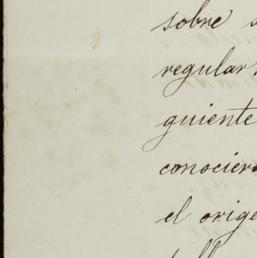 sobre
regular
guiente
conocier
el orige